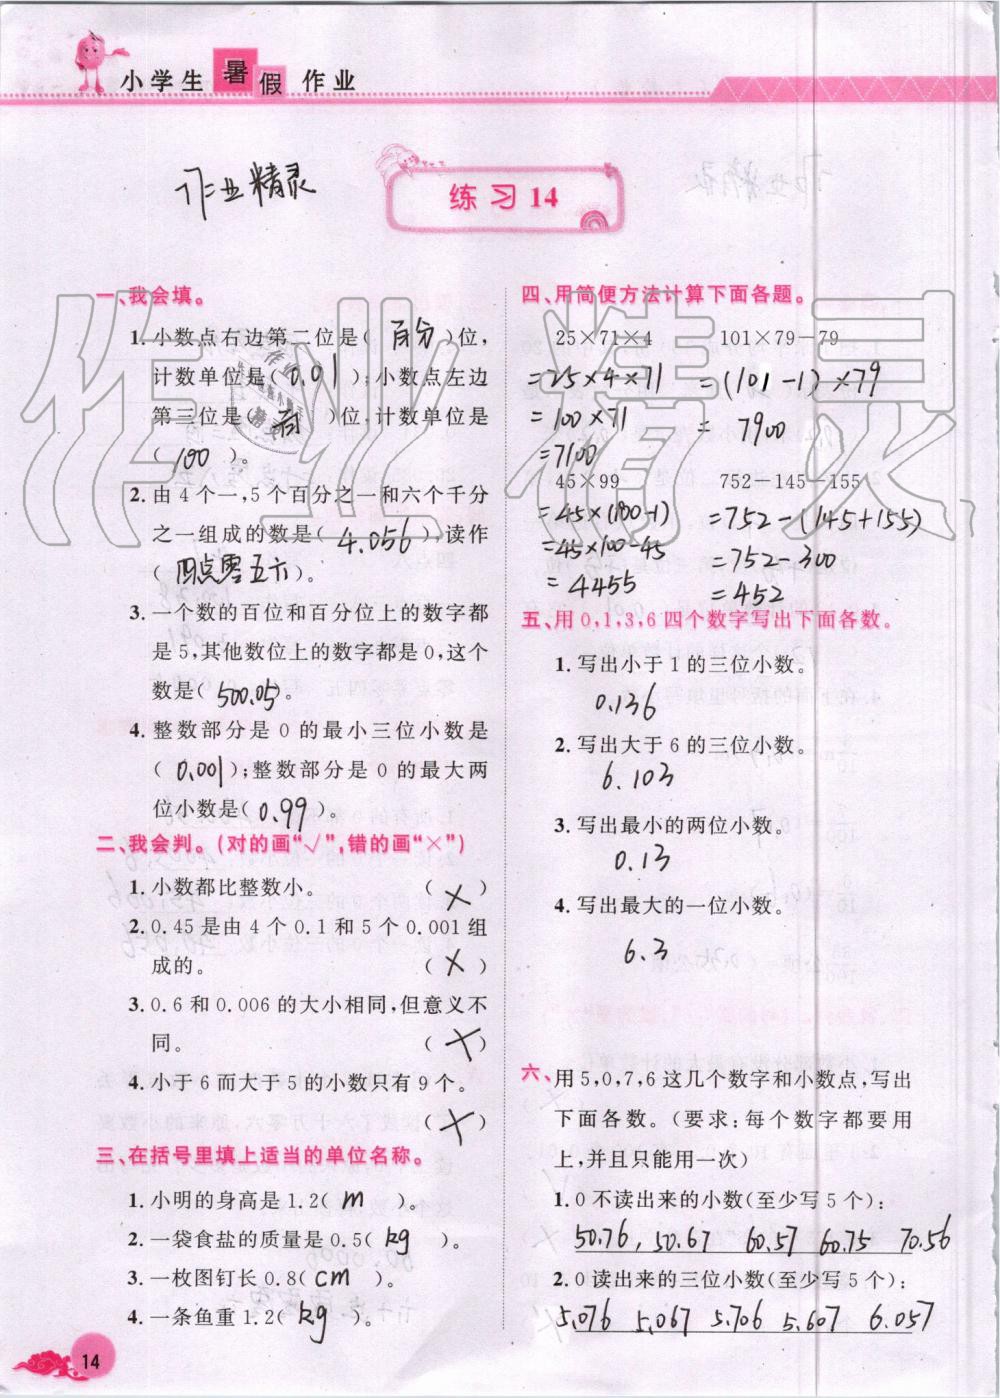 小学生暑假作业
作业精灵
练习14
一、我会填。
1.小数点右边第二位是( 百分 )位,
计数单位是(0.01);小数点左边
第三位是( 百 )位,计数单位是
( 100 )。
2.由4个一,5个百分之一和六个千分
之一组成的数是( 4.056 ),读作
( 四点零五六 )。
3.一个数的百位和百分位上的数字都
是5,其他数位上的数字都是0,这个
数是( 500.05 )。
4.整数部分是0的最小三位小数是
( 0.001 );整数部分是0的最大两
位小数是( 0.99 )。
二、我会判。(对的画“√”,错的画“×”)
1.小数都比整数小。 ( × )
2.0.45是由4个0.1和5个0.001组
成的。 ( × )
3.0.6和0.006的大小相同,但意义不
同。 ( × )
4.小于6而大于5的小数只有9个。
( × )
三、在括号里填上适当的单位名称。
1.小明的身高是1.2( m )。
2.一袋食盐的质量是0.5( kg )。
3.一枚图钉长0.8( cm )。
4.一条鱼重1.2( kg )。
四、用简便方法计算下面各题。
25×71×4 101×79-79
=25×4×71 =(101-1)×79
=100×71 = 7900
=7100
45×99 752-145-155
=45×(100-1) =752-(145+155)
=45×100-45 =752-300
=4455 =452
五、用0,1,3,6四个数字写出下面各数。
1.写出小于1的三位小数。
0.136
2.写出大于6的三位小数。
6.103
3.写出最小的两位小数。
0.13
4.写出最大的一位小数。
6.3
六、用5,0,7,6这几个数字和小数点,写出
下面各数。(要求:每个数字都要用
上,并且只能用一次)
1.0不读出来的小数(至少写5个):
50.76, 50.67 60.57 60.75 70.56
2.0读出来的三位小数(至少写5个):
5.076 5.067 5.706 5.607 6.057
14
作业精灵